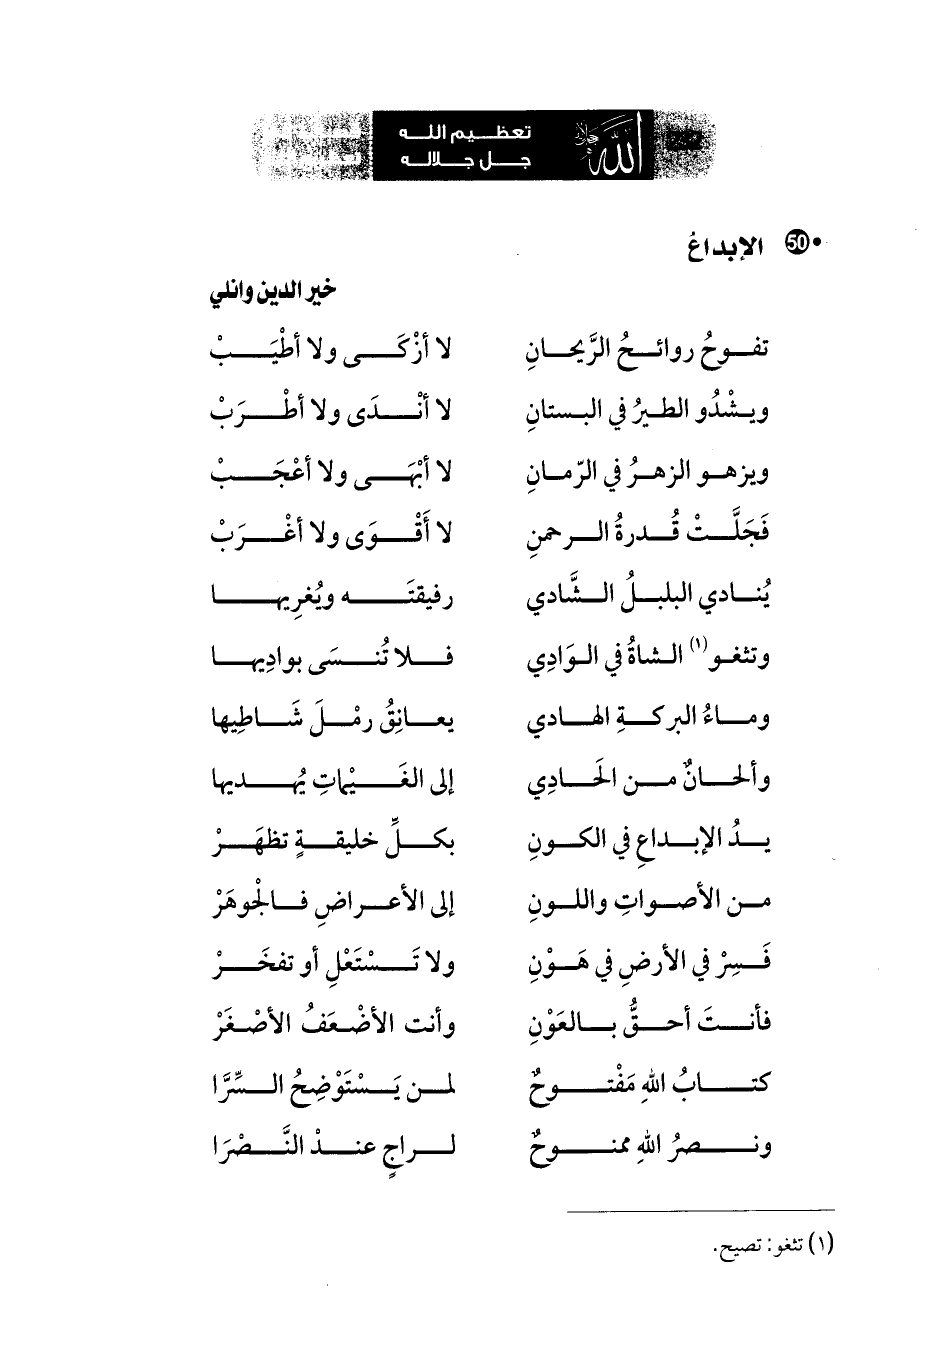 تعظيم الله
جل جلاله
الله جل جلاله
50 الإبداعُ
خير الدين وانلي
تفوحُ روائحُ الرَّيحانِ لا أزْكَى ولا أطْيَبْ
ويشْدُو الطيرُ في البستانِ لا أنْدَى ولا أطْرَبْ
ويزهو الزهرُ في الرّمانِ لا أبْهَى ولا أعْجَبْ
فَجَلَّتْ قُدرةُ الرحمنِ لا أَقْوَى ولا أغْرَبْ
يُنادي البلبلُ الشَّادي رفيقتَه ويُغرِيها
وتثغو(١) الشاةُ في الوَادِي فلا تُنسَى بوادِيها
وماءُ البركةِ الهادي يعانِقُ رمْلَ شَاطِيها
وألحانٌ من الحَادِي إلى الغَيْماتِ يُهديها
يدُ الإبداعِ في الكونِ بكلِّ خليقةٍ تظهَرْ
من الأصواتِ واللونِ إلى الأعراضِ فالجْوهَرْ
فَسِرْ في الأرضِ في هَوْنِ ولا تَسْتَعْلِ أو تفخَرْ
فأنتَ أحقُّ بالعَوْنِ وأنت الأضْعَفُ الأصْغَرْ
كتابُ اللهِ مَفْتوحٌ لمن يَسْتَوْضِحُ السِّرَّا
ونصرُ اللهِ ممنوحٌ لراجٍ عندْ النَّضْرَا
(١) تثغو: تصيح.